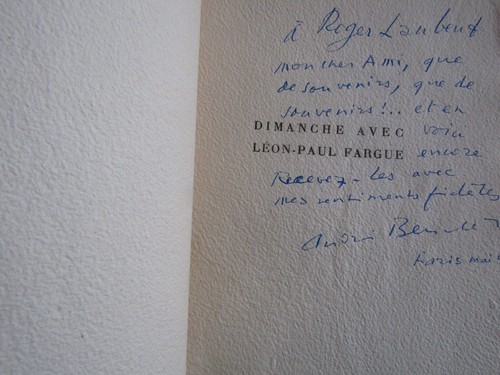 à Roger Laubeuf
mon cher Ami, que
de souvenirs, que de
souvenirs!.. et en
DIMANCHE AVEC voici
LÉON-PAUL FARGUE encore
Recevez-les avec
mes sentiments fidèles
André
Paris mai